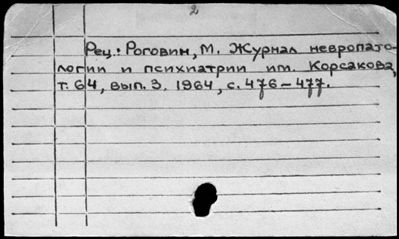 2
Рец.: Роговин, М. Журнал невропато-
логии и психиатрии им. Корсакова,
т. 64, вып. 3. 1964, с. 476–477.